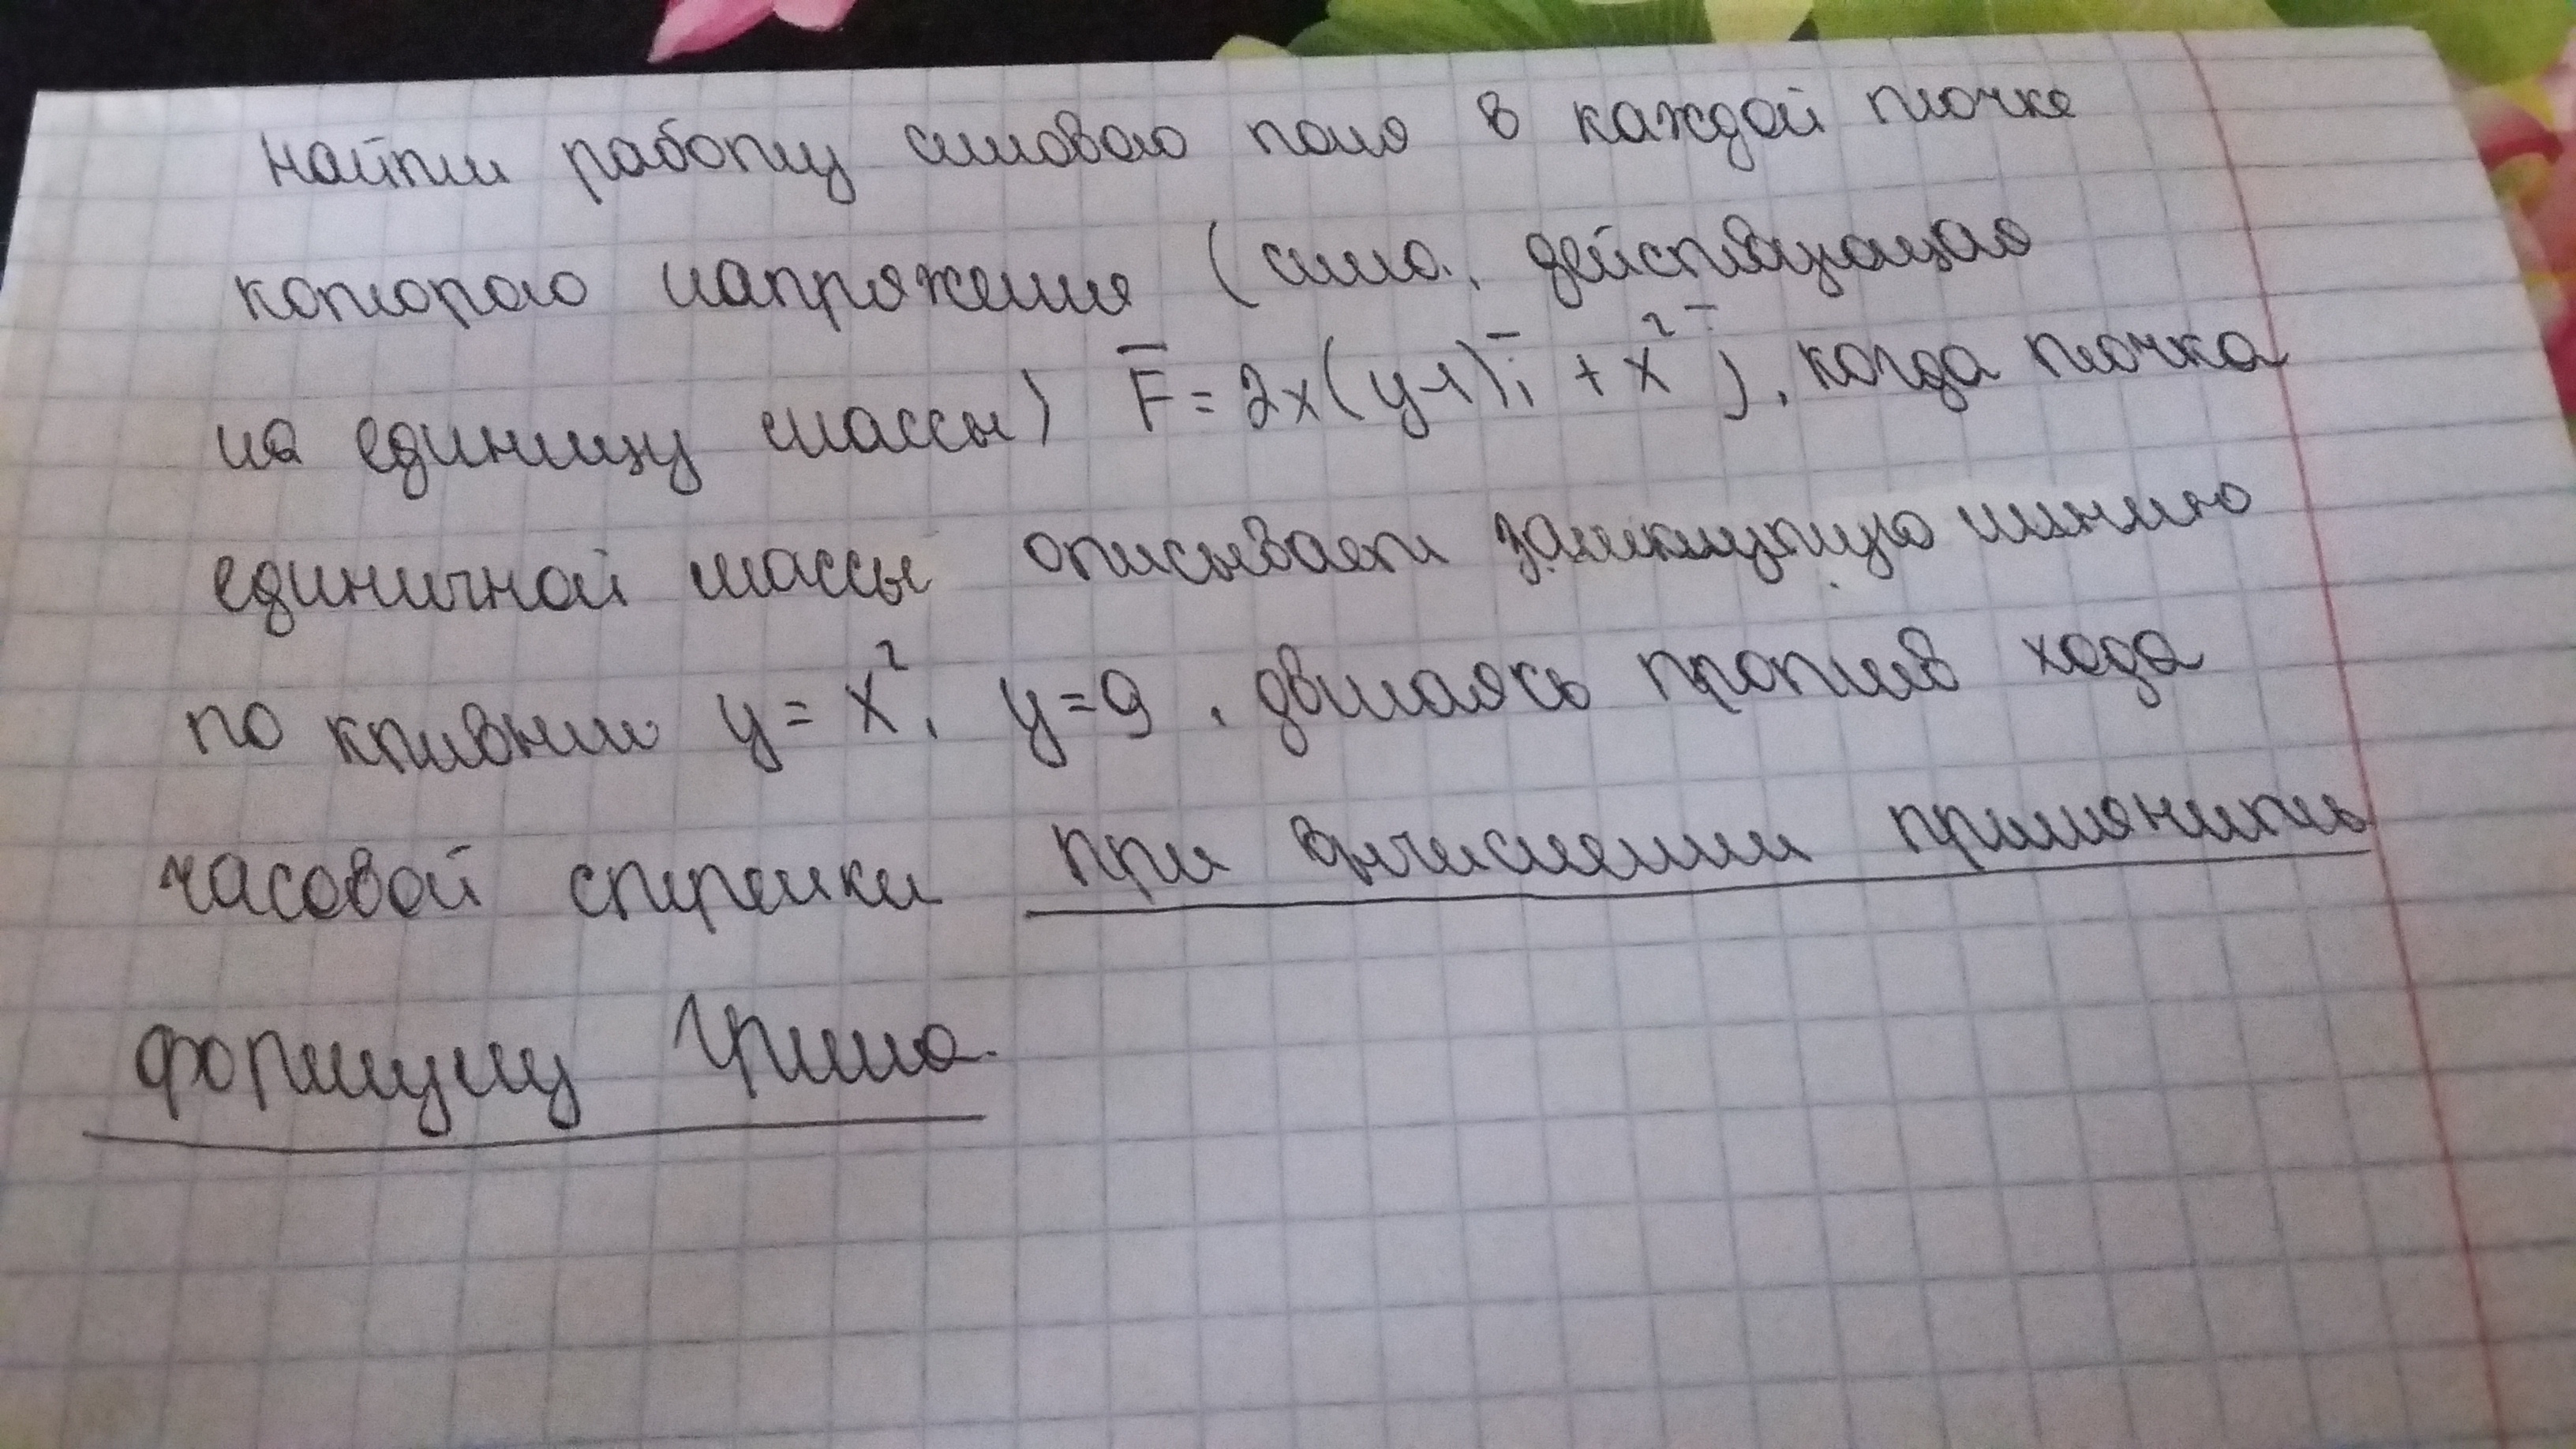 Найти работу силового поля в каждой точке
которого напряжение (сила, действующая
на единицу массы) F̅ = 2x(y-1)i̅ + x² j̅, когда точка
единичной массы описывает замкнутую линию
по кривым y = x², y=9, двигаясь против хода
часовой стрелки при вычислении применить
формулу Грина.